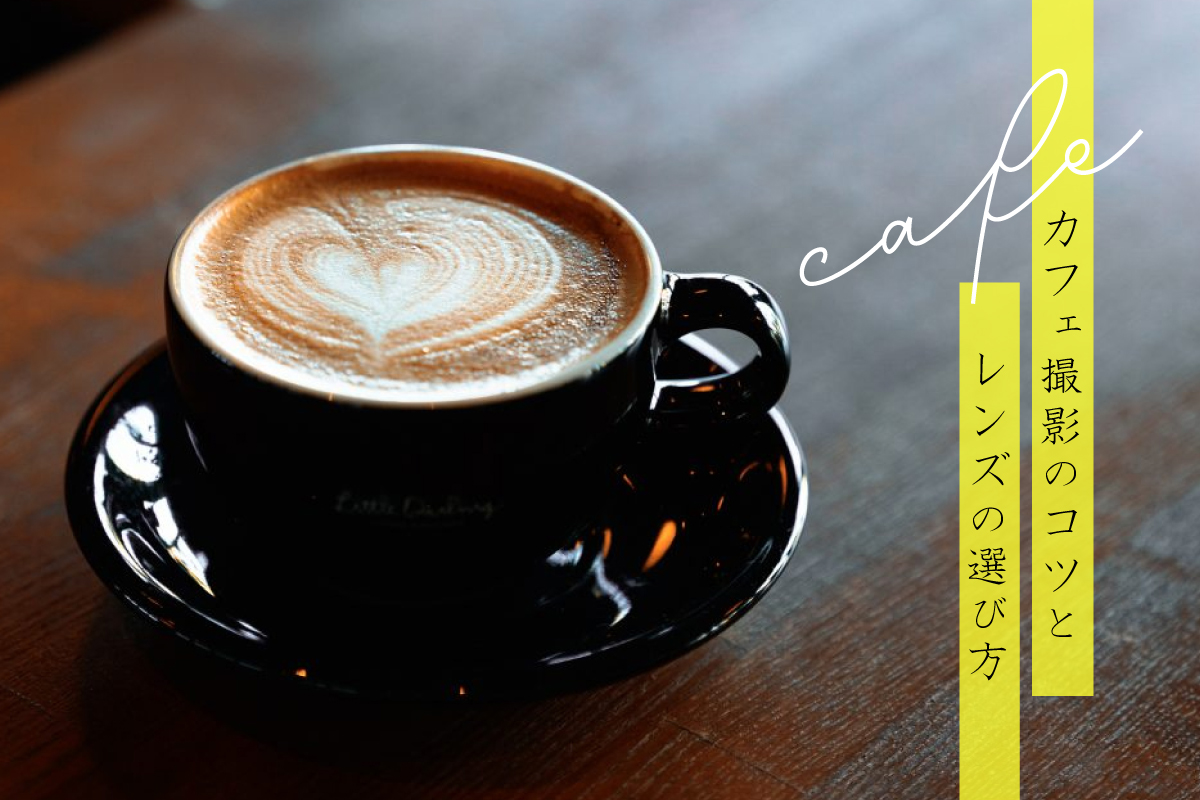 cafe
カフェ撮影のコツと
レンズの選び方
Little Darling